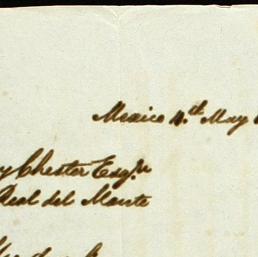 Mexico 4.th May
Chester Esqr.
Real del Monte